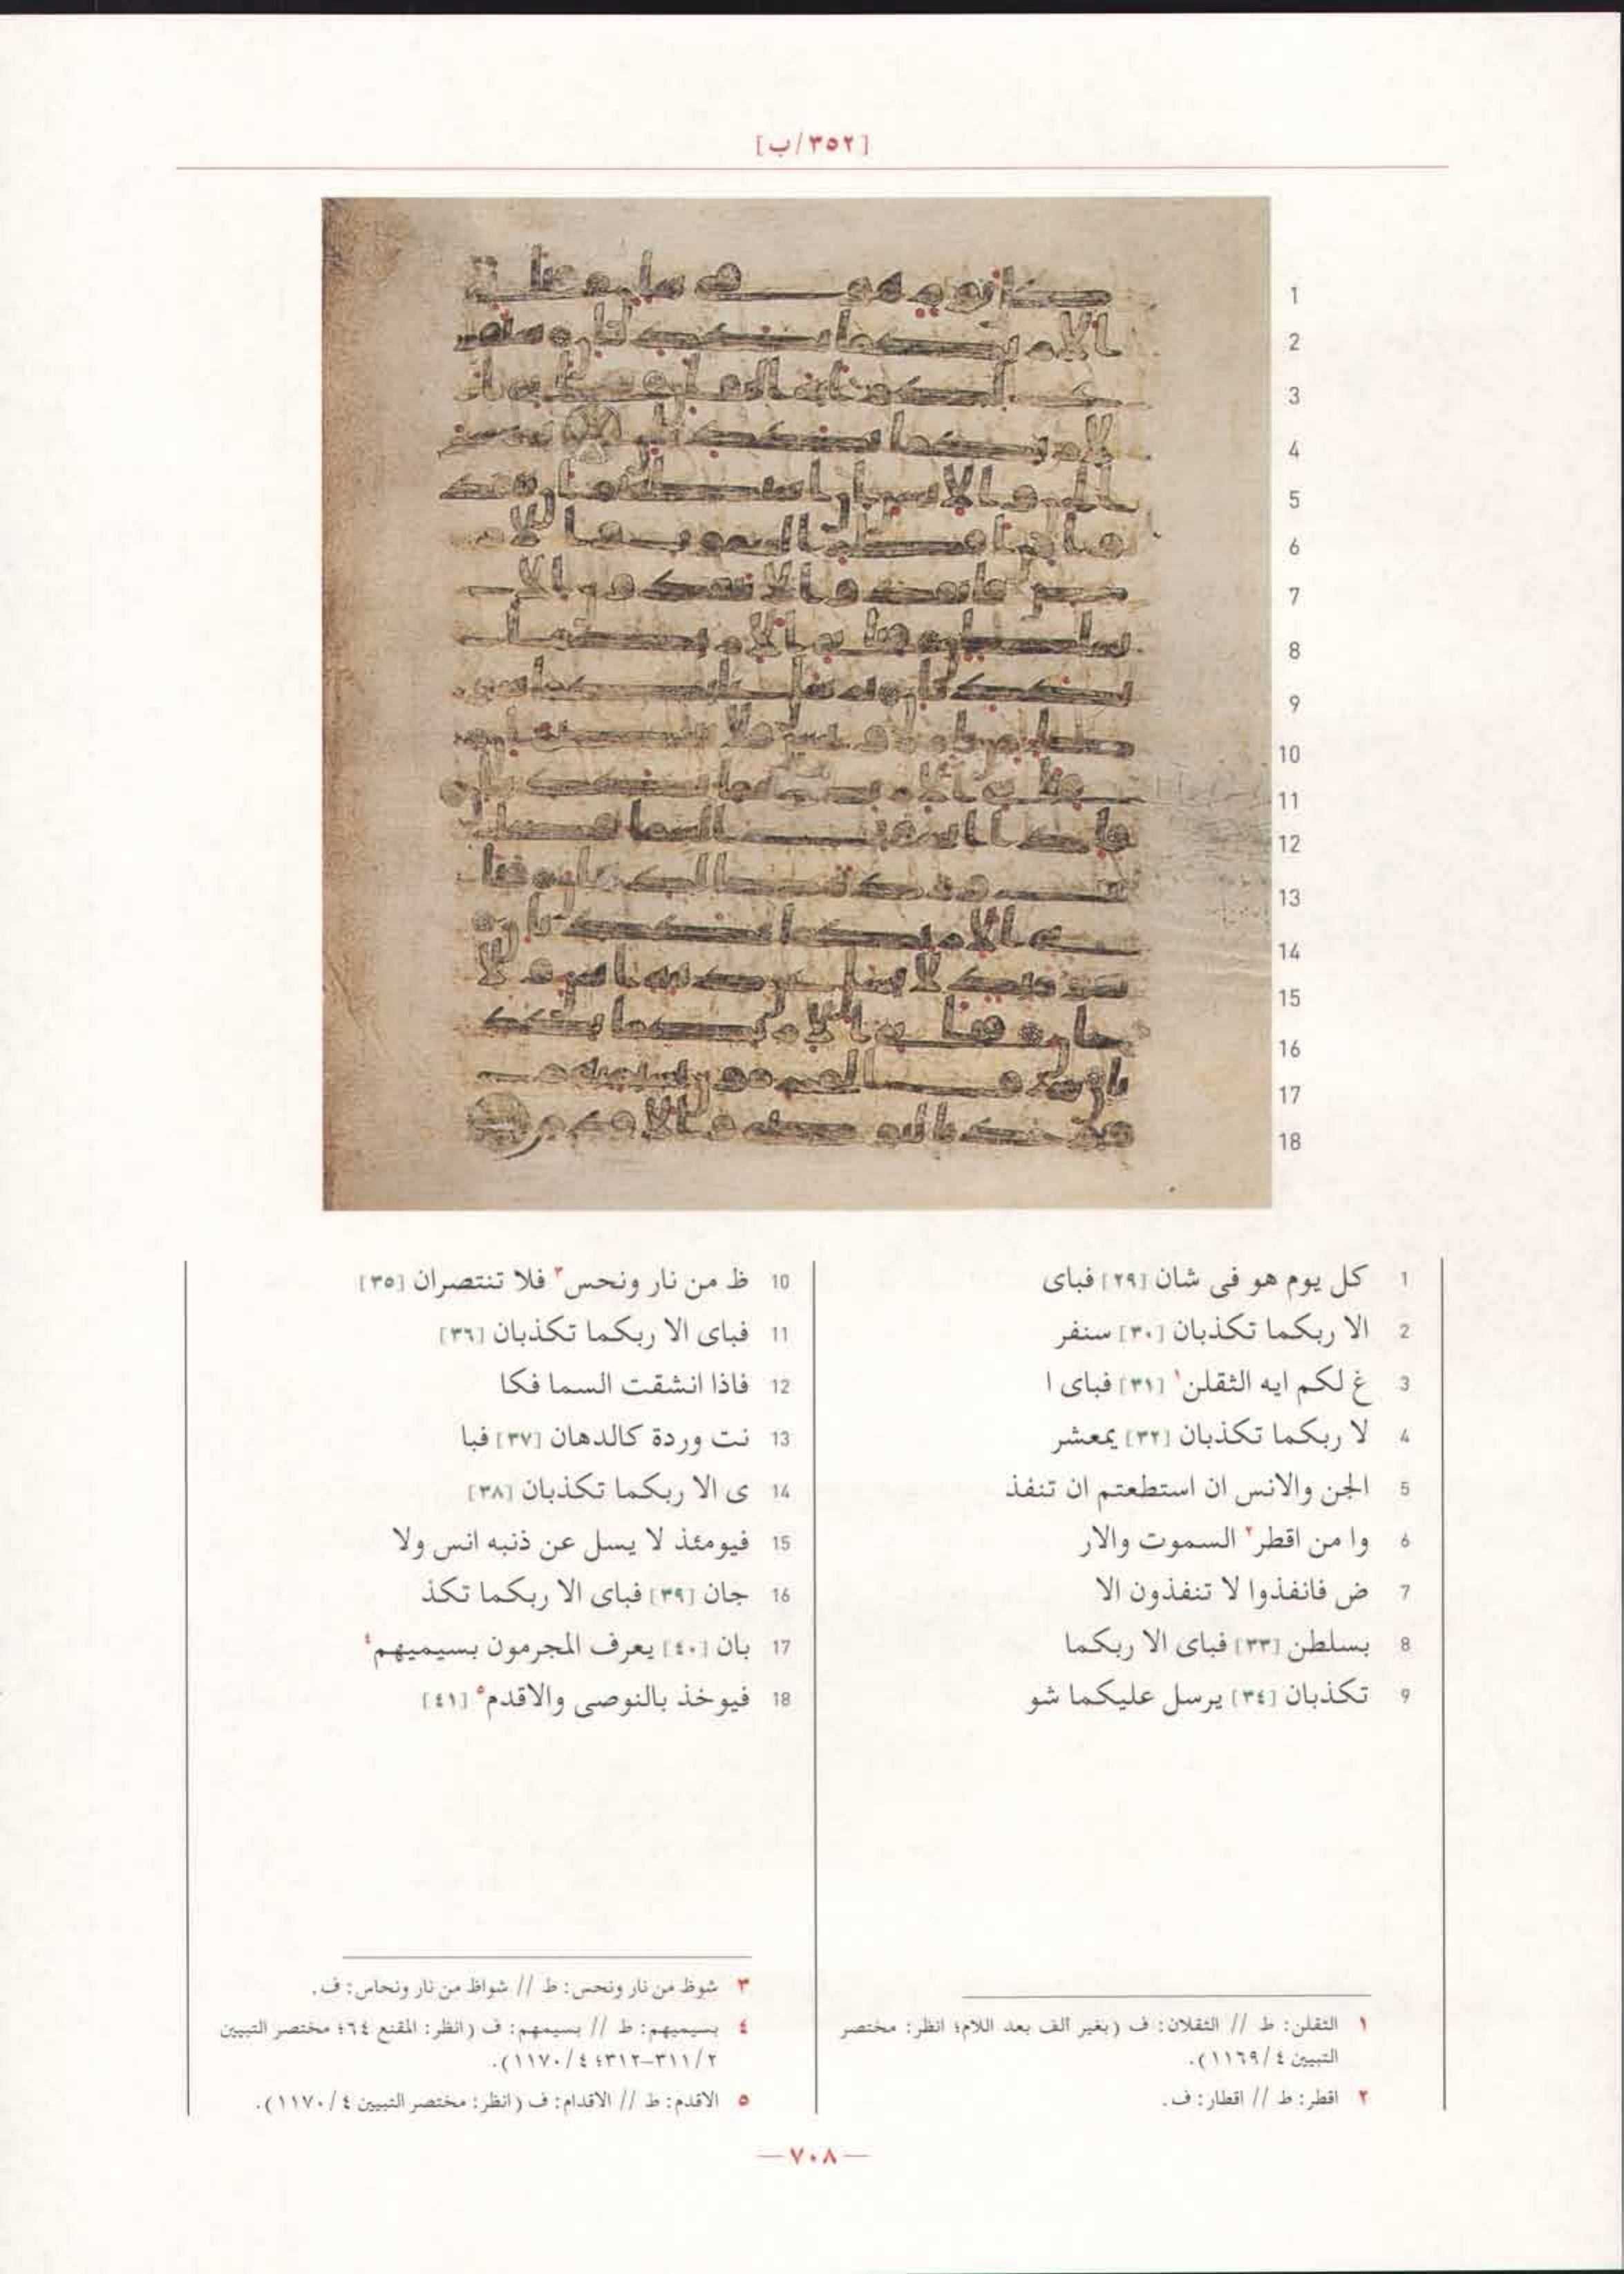 [٣٥٢/ب]
1 كل يوم هو فى شان [٢٩] فباى
2 الا ربكما تكذبان [٣٠] سنفر
3 غ لكم ايه الثقلن١ [٣١] فباى ا
4 لا ربكما تكذبان [٣٢] يمعشر
5 الجن والانس ان استطعتم ان تنفذ
6 وا من اقطر٢ السموت والار
7 ض فانفذوا لا تنفذون الا
8 بسلطن [٣٣] فباى الا ربكما
9 تكذبان [٣٤] يرسل عليكما شو
10 ظ من نار ونحس٣ فلا تنتصران [٣٥]
11 فباى الا ربكما تكذبان [٣٦]
12 فاذا انشقت السما فكا
13 نت وردة كالدهان [٣٧] فبا
14 ى الا ربكما تكذبان [٣٨]
15 فيومئذ لا يسل عن ذنبه انس ولا
16 جان [٣٩] فباى الا ربكما تكذ
17 بان [٤٠] يعرف المجرمون بسيميهم٤
18 فيوخذ بالنوصى والاقدم٥ [٤١]
١ الثقلن: ط // الثقلان: ف (بغير ألف بعد اللام؛ انظر: مختصر
التبيين ٤/١١٦٩).
٢ اقطر: ط // اقطار: ف.
٣ شوظ من نار ونحس: ط // شواظ من نار ونحاس: ف.
٤ بسيميهم: ط // بسيمهم: ف (انظر: المقنع ٦٤؛ مختصر التبيين
٢/٣١١-٣١٢؛ ٤/١١٧٠).
٥ الاقدم: ط // الاقدام: ف (انظر: مختصر التبيين ٤/١١٧٠).
—٧٠٨—